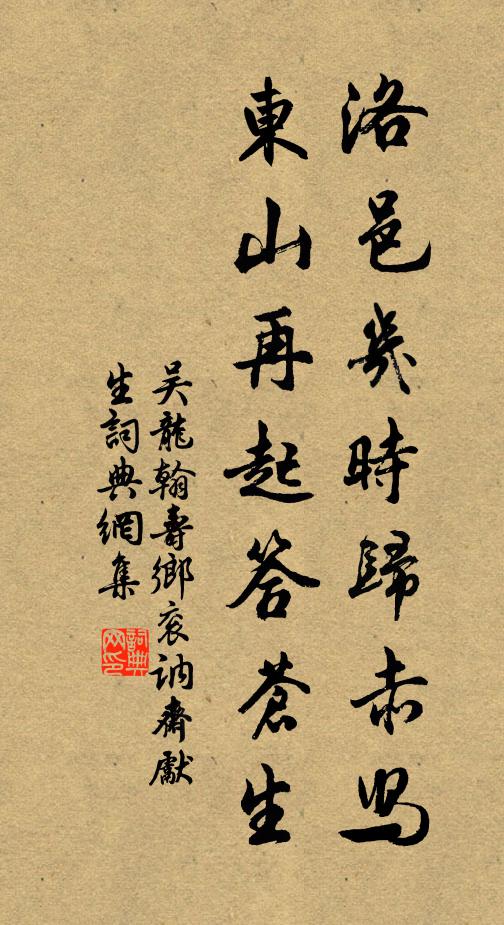 洛邑幾時歸赤舄
東山再起答蒼生
吴龍翰壽鄉衮訥齋獻
生詞典網集
詞典網印